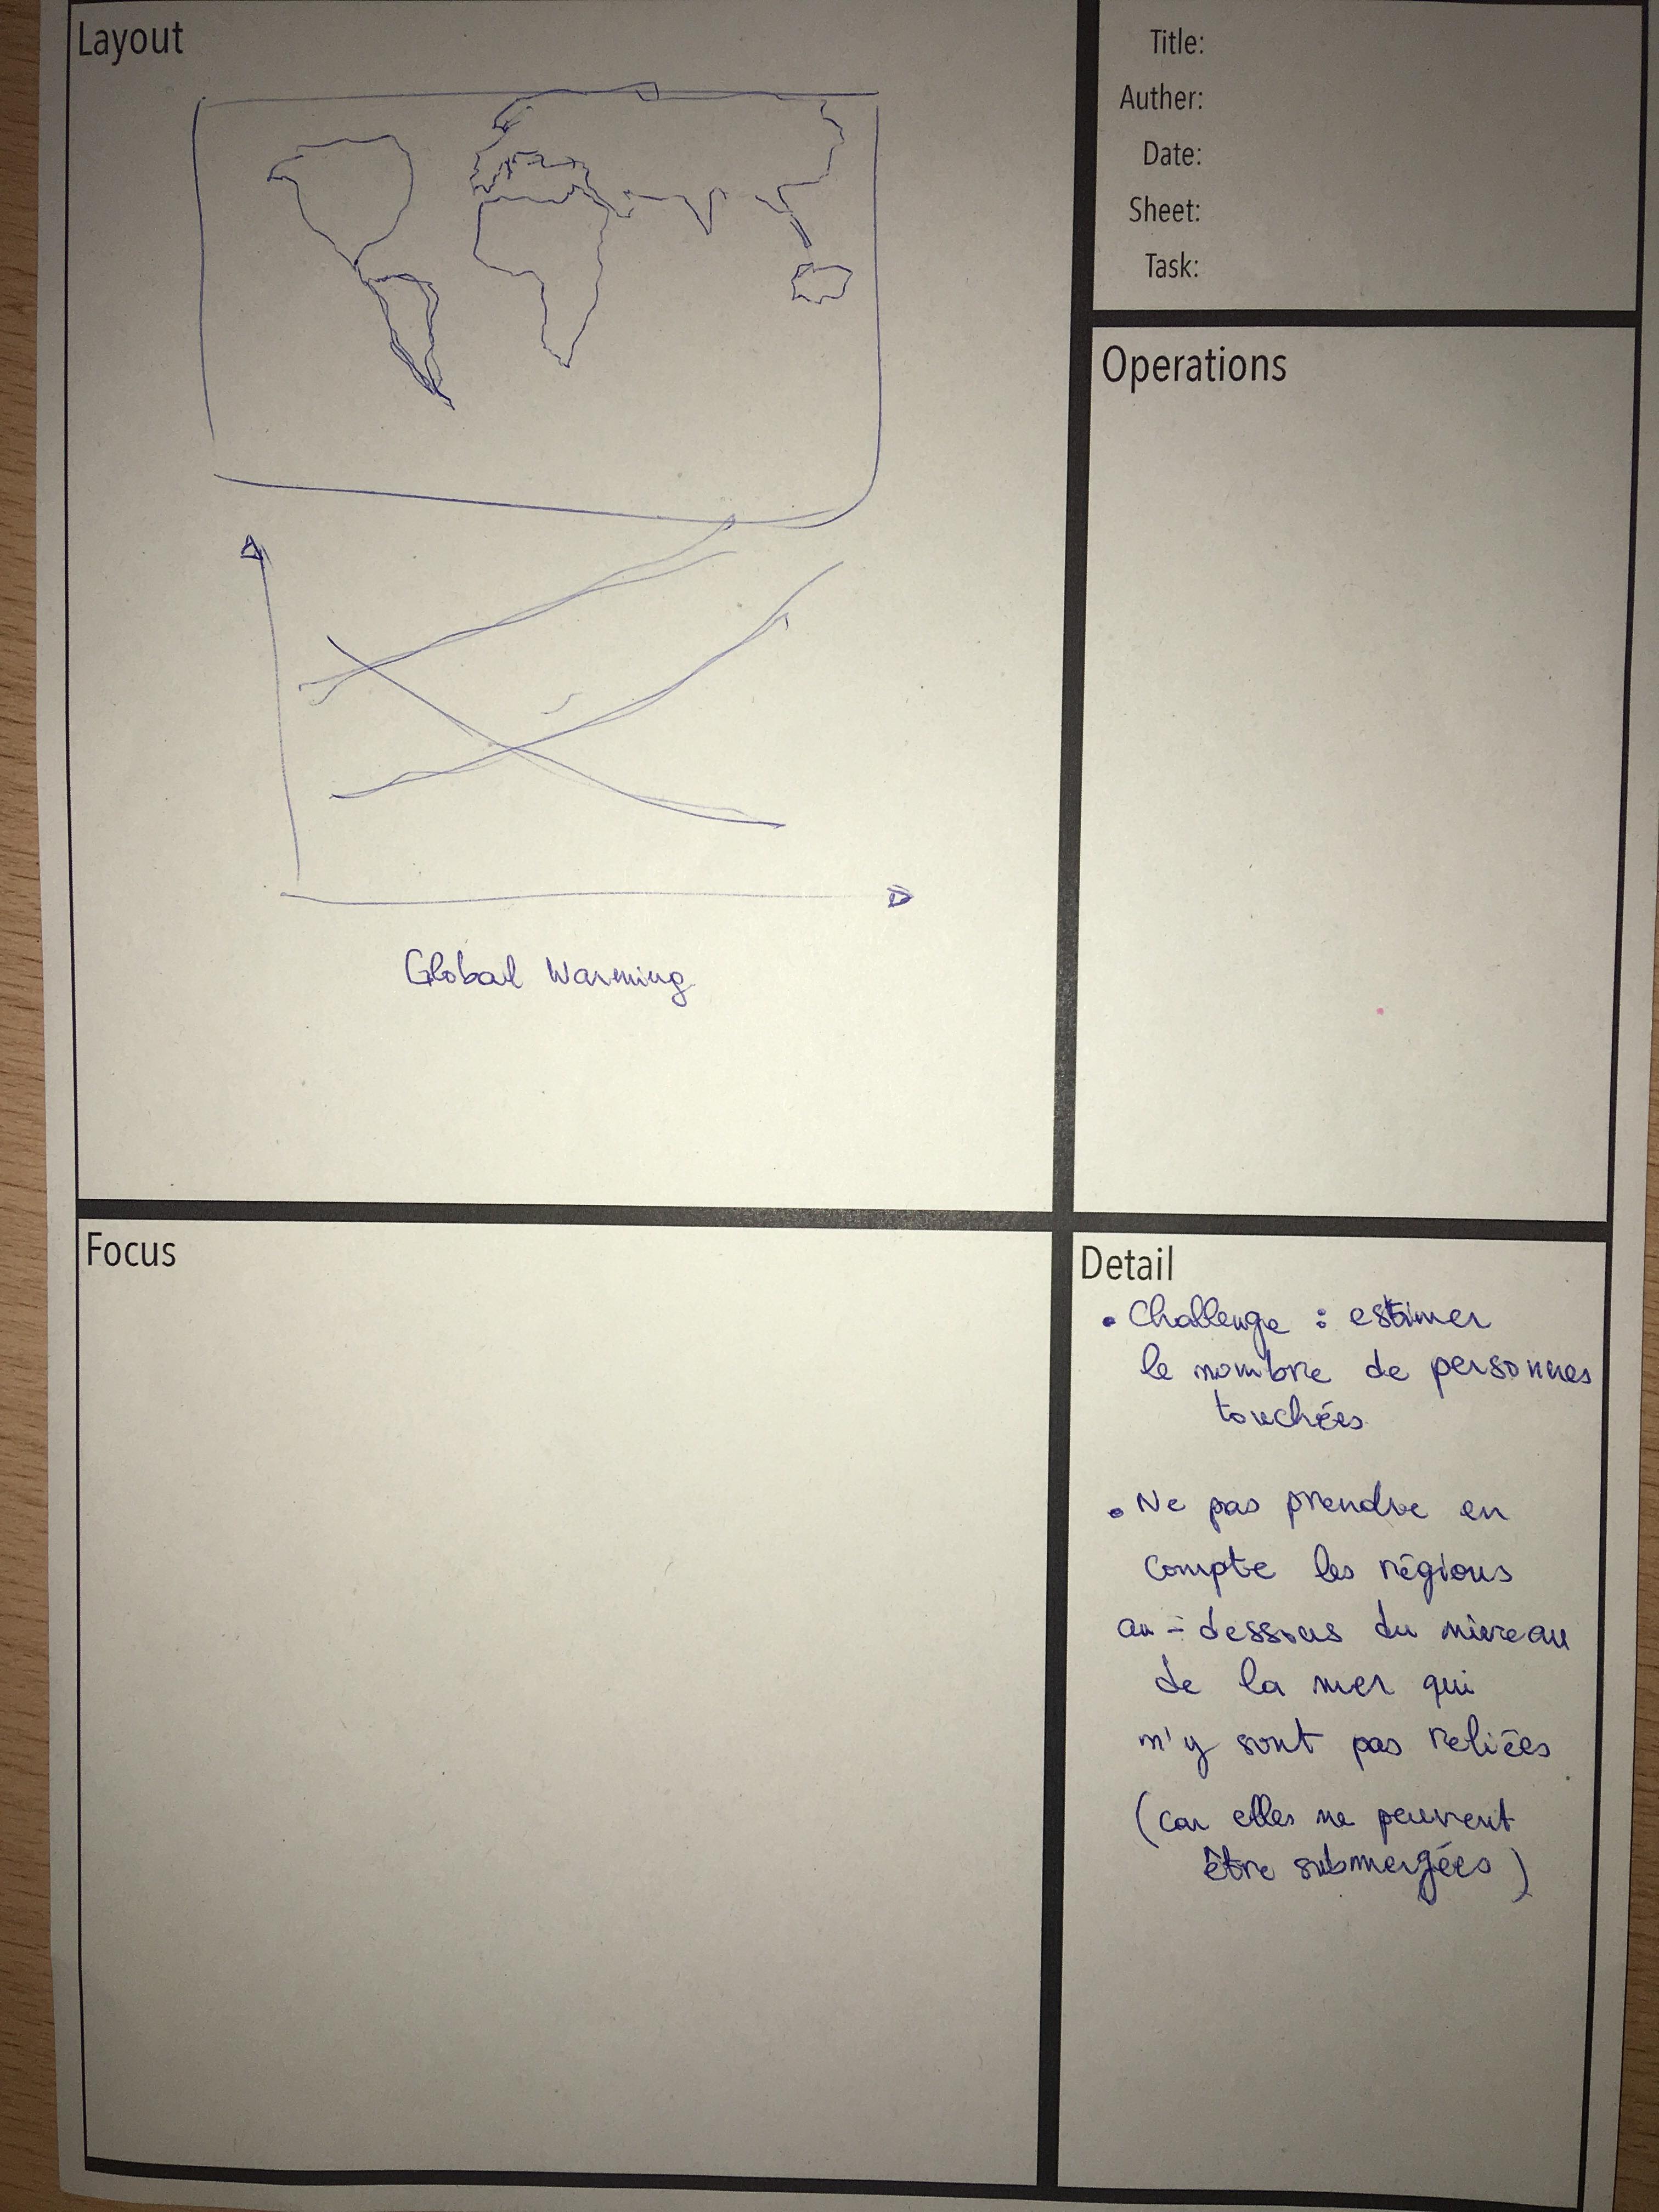 Layout
Global Warming
Title:
Auther:
Date:
Sheet:
Task:
Operations
Focus
Detail
• Challenge : estimer
le nombre de personnes
touchées
• Ne pas prendre en
compte les régions
au-dessous du niveau
de la mer qui
n'y sont pas reliées
(car elles ne peuvent
être submergées)